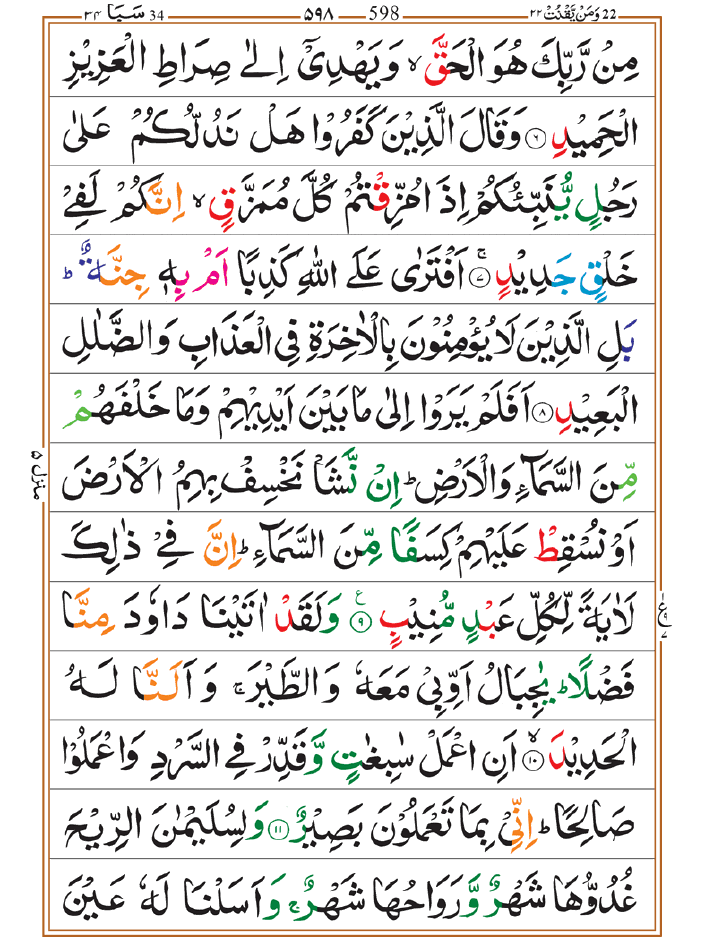 22 وَمَنْ يَّقْنُتْ ٢٢
598 ٥٩٨
34 سَبَا ٣٤
مِنْ رَّبِّكَ هُوَ الْحَقَّ ۙ وَيَهْدِيْۤ اِلٰى صِرَاطِ الْعَزِيْزِ
الْحَمِيْدِ ۝٦ وَقَالَ الَّذِيْنَ كَفَرُوْا هَلْ نَدُلُّكُمْ عَلٰى
رَجُلٍ يُّنَبِّئُكُمْ اِذَا مُزِّقْتُمْ كُلَّ مُمَزَّقٍ ۙ اِنَّكُمْ لَفِيْ
خَلْقٍ جَدِيْدٍ ۝٧ۚ اَفْتَرٰى عَلَى اللّٰهِ كَذِبًا اَمْ بِهٖ جِنَّةٌ ؕ
بَلِ الَّذِيْنَ لَا يُؤْمِنُوْنَ بِالْاٰخِرَةِ فِى الْعَذَابِ وَالضَّلٰلِ
الْبَعِيْدِ ۝٨ اَفَلَمْ يَرَوْا اِلٰى مَا بَيْنَ اَيْدِيْهِمْ وَمَا خَلْفَهُمْ
مِّنَ السَّمَآءِ وَالْاَرْضِ ؕ اِنْ نَّشَاْ نَخْسِفْ بِهِمُ الْاَرْضَ
اَوْ نُسْقِطْ عَلَيْهِمْ كِسَفًا مِّنَ السَّمَآءِ ؕ اِنَّ فِيْ ذٰلِكَ
لَاٰيَةً لِّكُلِّ عَبْدٍ مُّنِيْبٍ ۝٩ۧ وَلَقَدْ اٰتَيْنَا دَاوٗدَ مِنَّا
فَضْلًا ؕ يٰجِبَالُ اَوِّبِيْ مَعَهٗ وَالطَّيْرَ ۚ وَاَلَنَّا لَهُ
الْحَدِيْدَ ۝١٠ۙ اَنِ اعْمَلْ سٰبِغٰتٍ وَّقَدِّرْ فِى السَّرْدِ وَاعْمَلُوْا
صَالِحًا ؕ اِنِّيْ بِمَا تَعْمَلُوْنَ بَصِيْرٌ ۝١١ وَلِسُلَيْمٰنَ الرِّيْحَ
غُدُوُّهَا شَهْرٌ وَّرَوَاحُهَا شَهْرٌ ۚ وَاَسَلْنَا لَهٗ عَيْنَ
منزل ٥